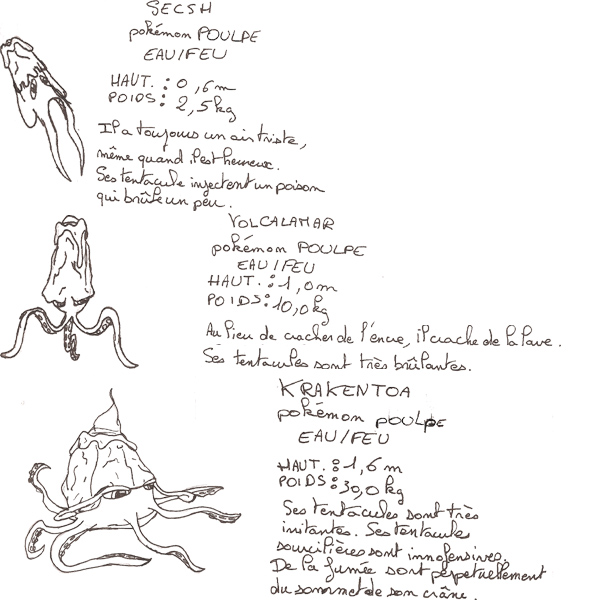 SECSH
pokémon POULPE
EAU/FEU
HAUT. : 0,6m
POIDS : 2,5kg
Il a toujous un air triste,
même quand il est heureux.
Ses tentacule injectent un poison
qui brûle un peu.
VOLCALAMAR
pokémon POULPE
EAU/FEU
HAUT. : 1,0m
POIDS : 10,0kg
Au lieu de cracher de l'encre, il crache de la lave.
Ses tentacules sont très brûlantes.
KRAKENTOA
pokémon POULPE
EAU/FEU
HAUT. : 1,6 m
POIDS : 30,0kg
Ses tentacules sont très
irritantes. Ses tentacules
sourcilières sont innofensives.
De la fumée sort perpetuellement
du sommet de son crâne.